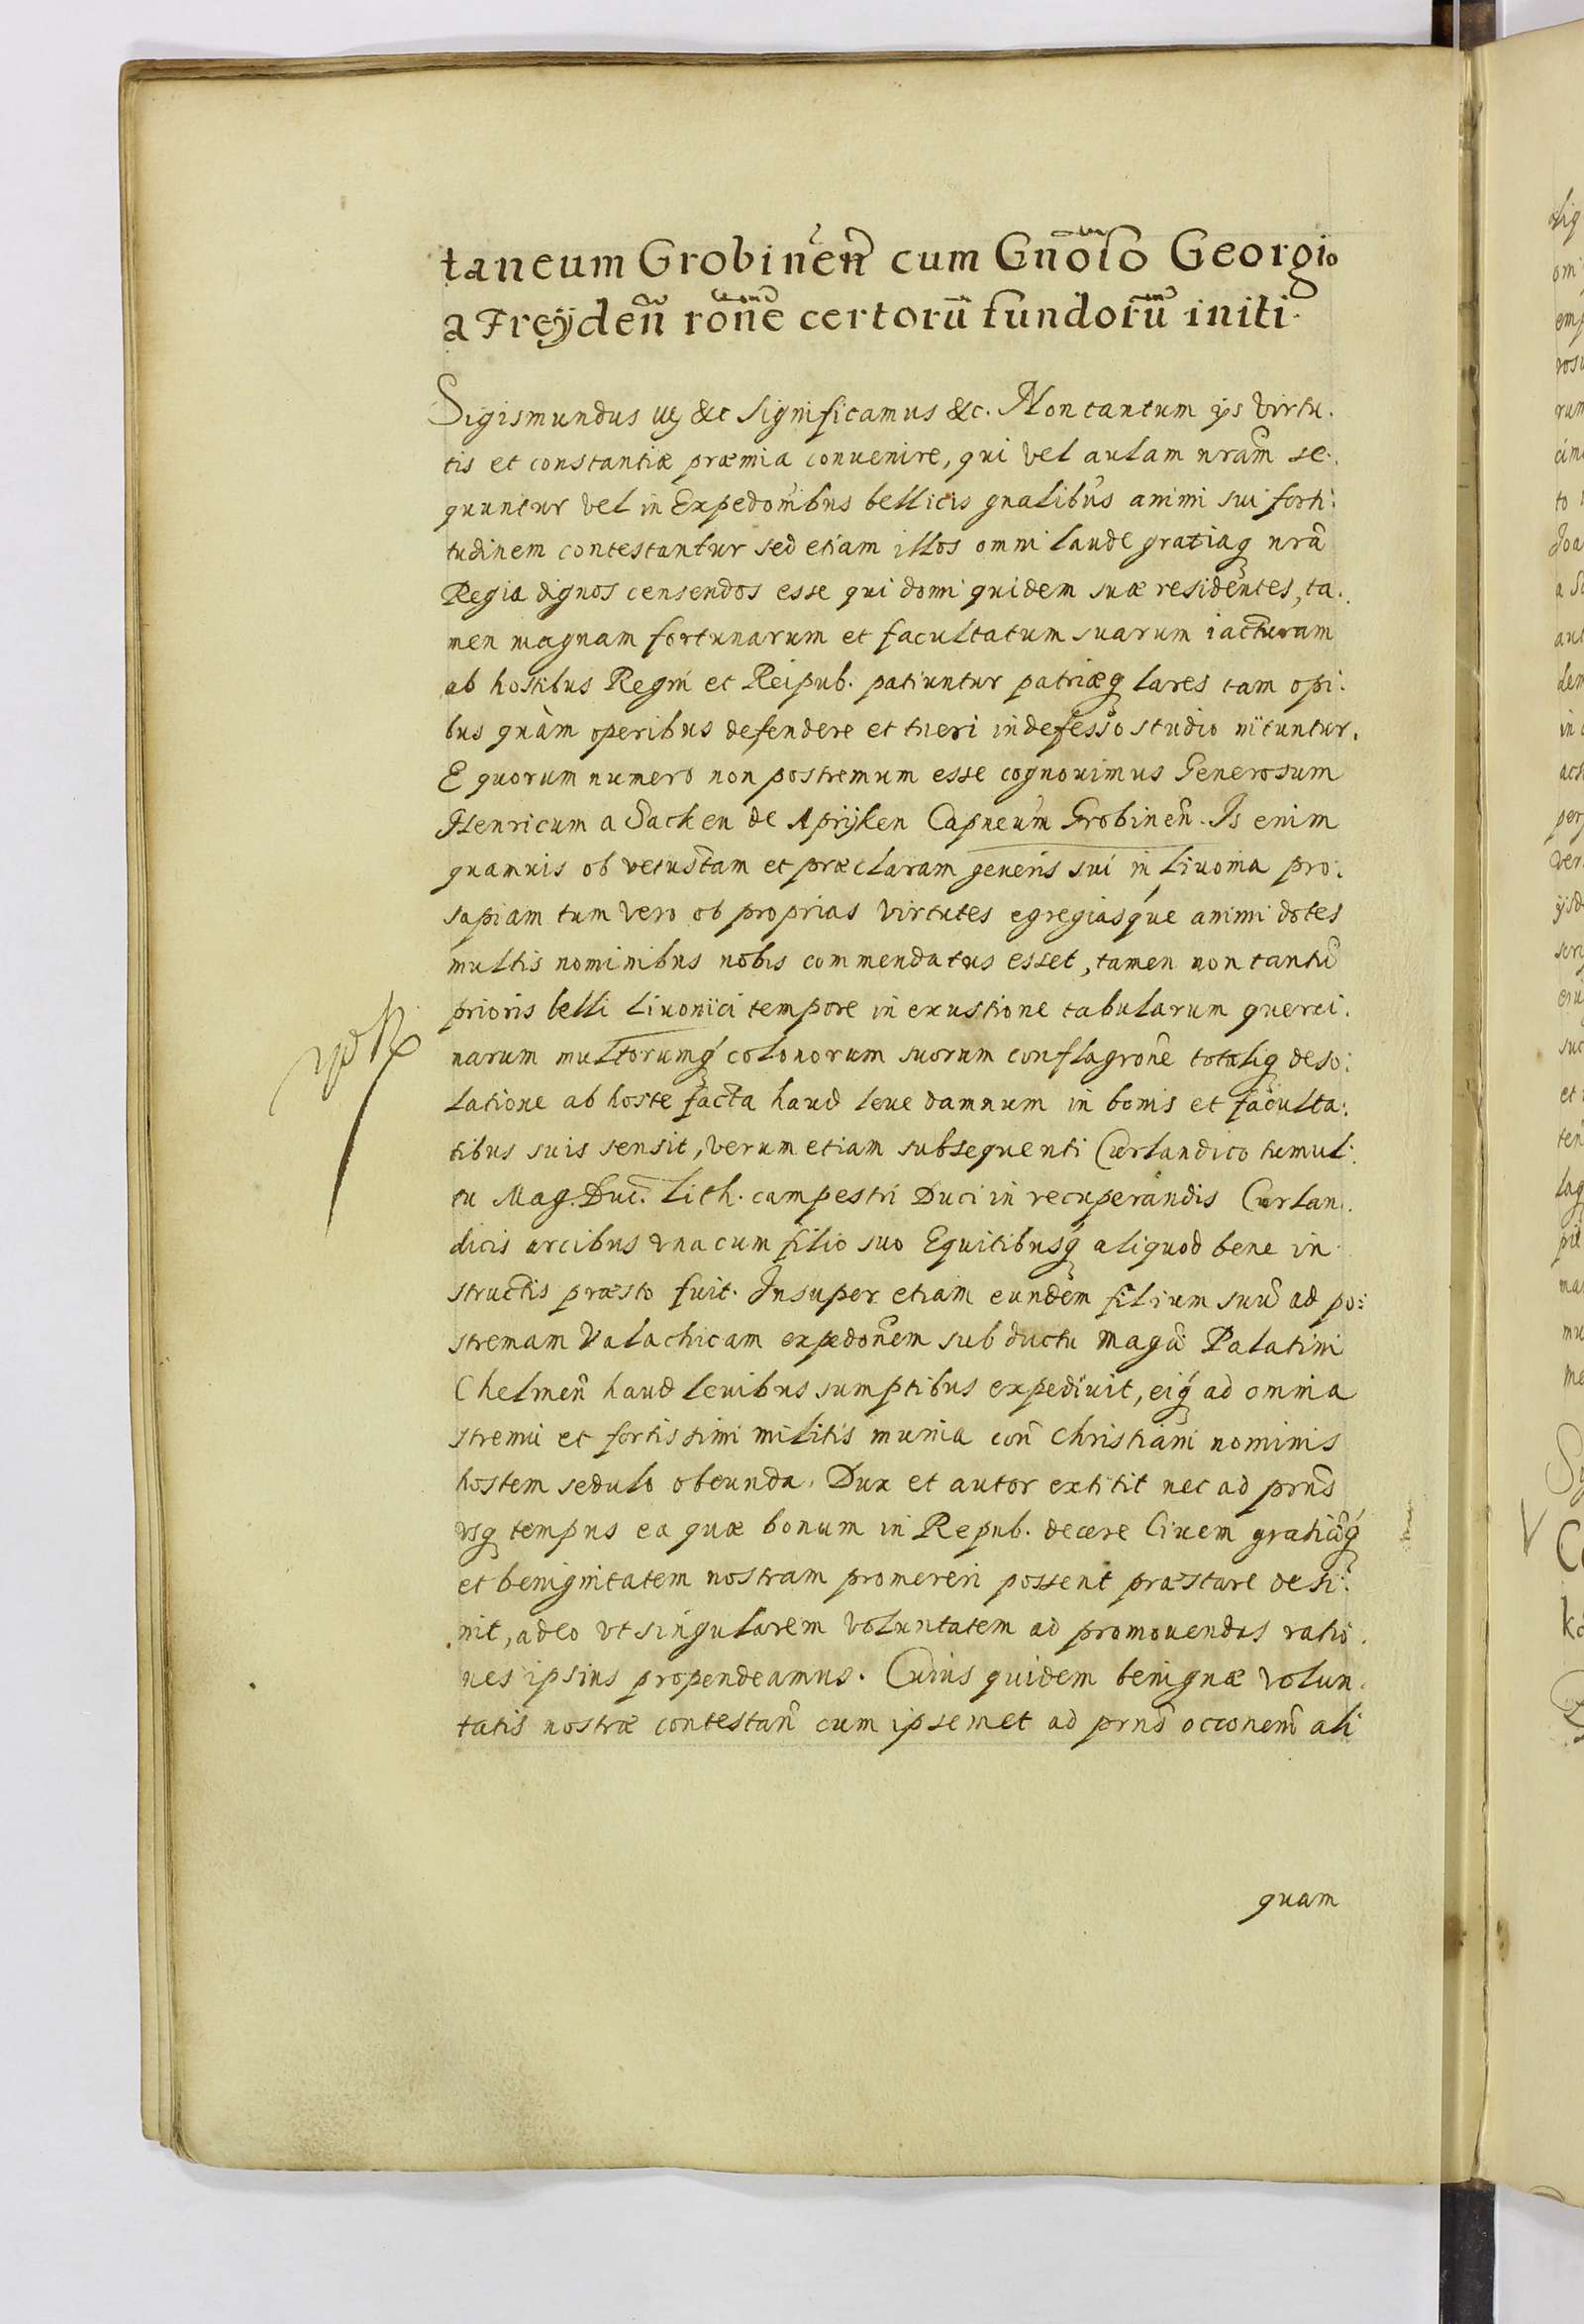 taneum Grobinen̄ cum Gn̄oso Georgio
a Freÿden̄ rōne certorū fundorū initi
Sigismundus III &c significamus &c. Non tantum ijs virtu.
tis et constantiæ præmia conuenire, qui vel aulam nram̃ se.
quuntur vel in Expedonibus bellicis gnalibus animi sui forti:
tudinem contestantur sed etiam illos omni laude gratiaq̢ nrã
Regia dignos censendos esse qui domi quidem suæ residentes, ta.
men magnam fortunarum et facultatum suarum iacturam
ab hostibus Regni et Reipub. patiuntur patriæq̢ lares tam opi:
bus quàm operibus defendere et tueri indefesso studio nituntur.
E quorum numero non postremum esse cognouimus Generosum
Henricum a Sacken de Aprijken Capneum Grobinen̄. Is enim
quamuis ob vetustam et præclaram generis sui in Liuonia pro:
sapiam tum vero ob proprias virtutes egregiasque animi dotes
multis nominibus nobis commendatus esset, tamen non tantũ
prioris belli Liuonici tempore in exustione tabularum querci.
narum multorumq̢ colonorum suorum conflagrone totaliq̢ deso:
latione ab hoste facta haud leue damnum in bonis et faculta:
tibus suis sensit, verum etiam subsequenti Curlandico tumul:
tu Mag. Duc. Lith. campestri Duci in recuperandis Curlan:
dicis arcibus vna cum filio suo Equitibusq̢ aliquod bene in
structis præsto fuit. Insuper etiam eundem filium suũ ad po:
stremam Valachicam expedonem sub ductu magci Palatini
Chelmen̄ haud leuibus sumptibus expediuit, eiq̢ ad omnia
strenui et fortissimi militis munia con̄ Christiani nominis
hostem sedulo obeunda. Dux et autor extitit nec ad prns̃
vsq̢ tempus ea quæ bonum in Repub. decere Ciuem gratiãq̢
et benignitatem nostram promereri possent præstare desi:
nit, adeo vt singularem voluntatem ad promouendas ratio.
nes ipsius propendeamus. Cuius quidem benignæ volun.
tatis nostræ contestan̄ cum ipsemet ad prns̃ occonem̃ ali
quam